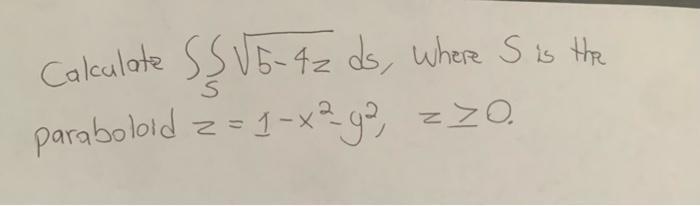 Calculate ∫∫√5-4z ds, where S is the
S
paraboloid z = 1-x²-y², z ≥ 0.